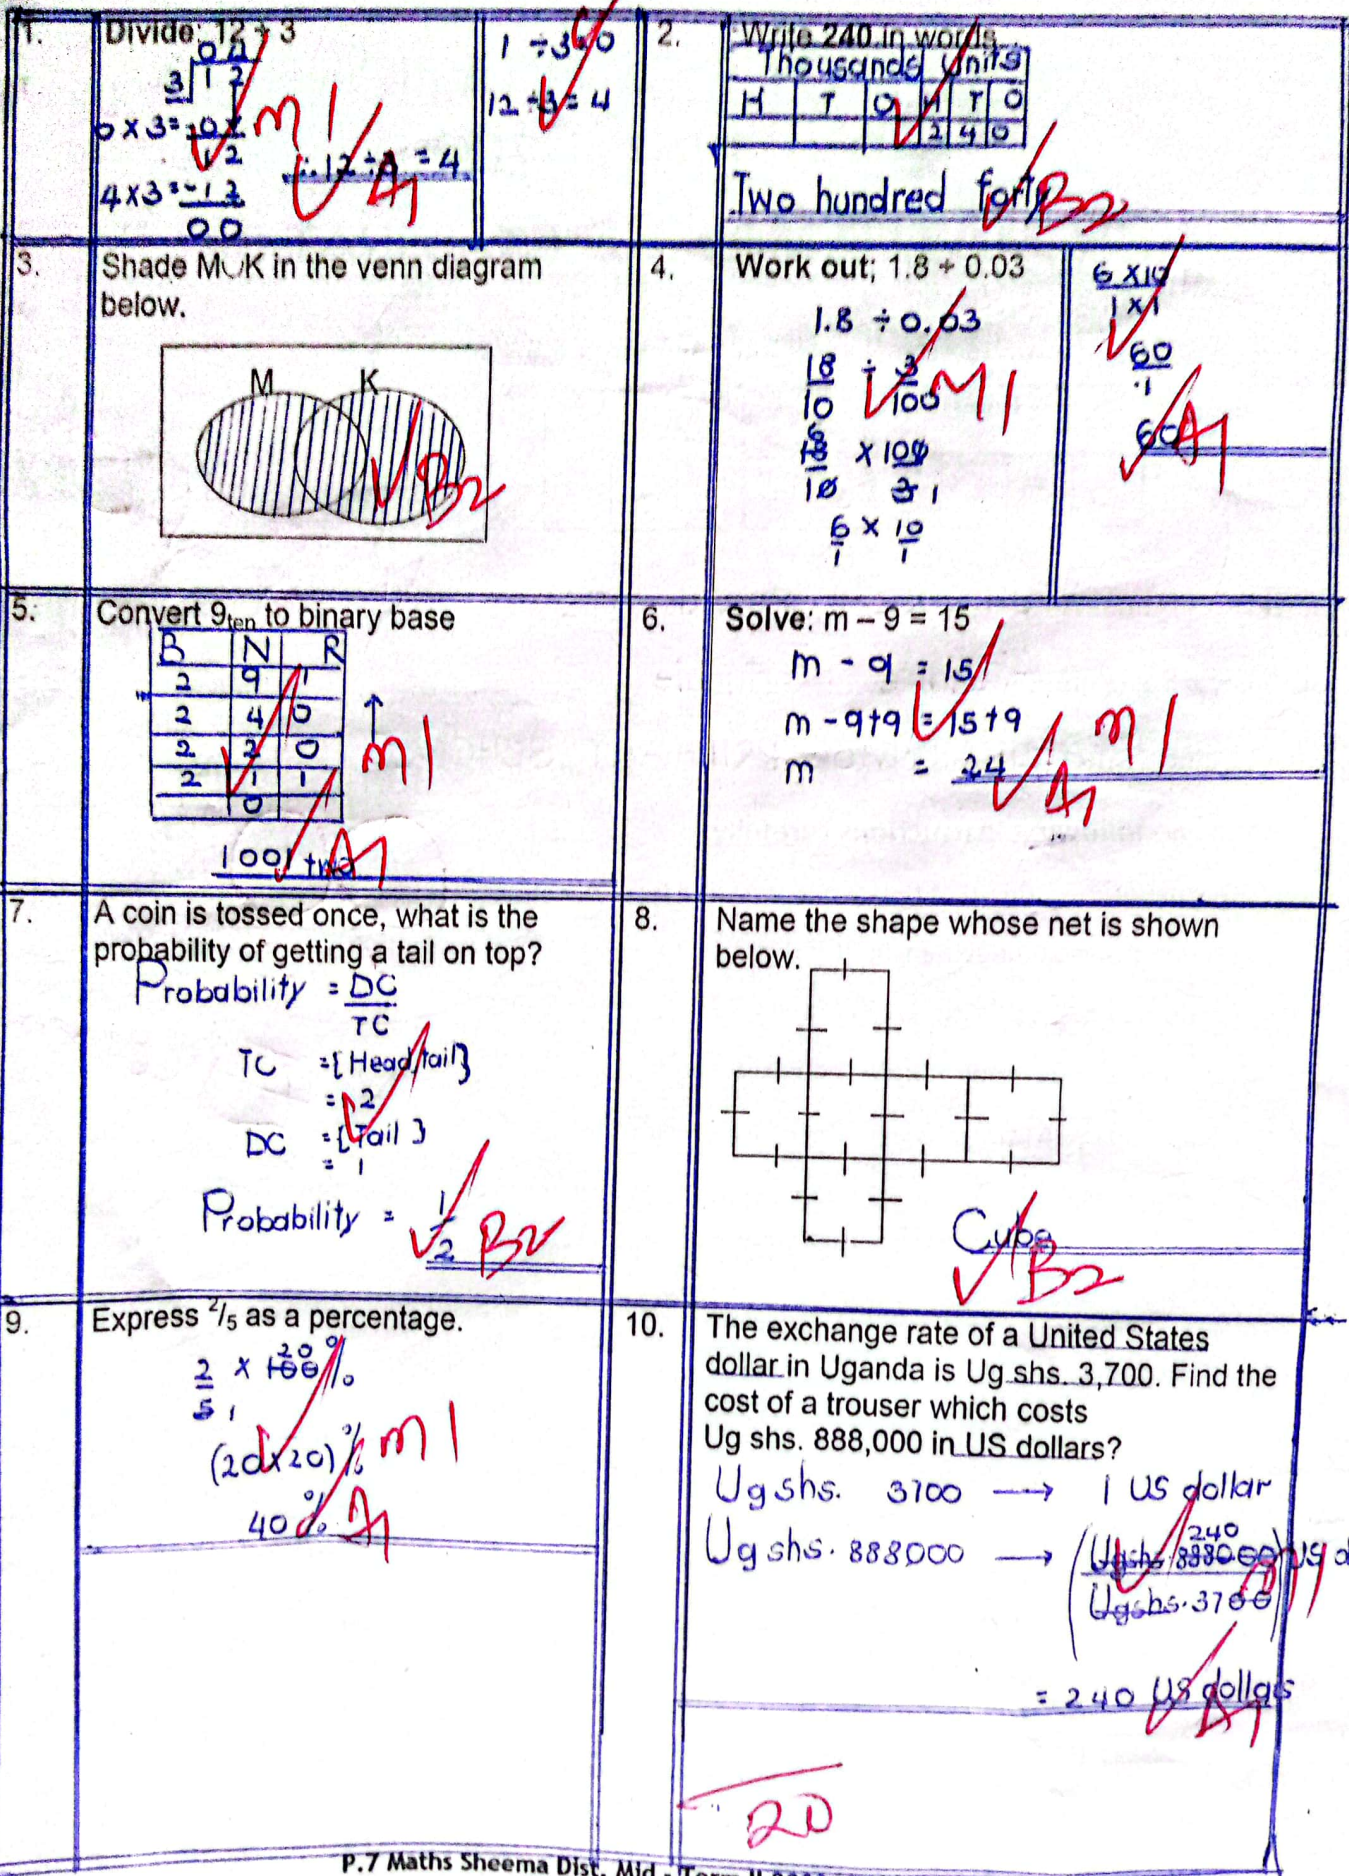 1.
Divide: 12 ÷ 3
0 4
3 1 2
0 x 3 = - 0
1 2
4 x 3 = - 1 2
0 0
∴ 12 ÷ 3 = 4
M1
A1
1 ÷ 3 = 0
12 ÷ 3 = 4
2.
Write 240 in words
Thousands Units
H T O H T O
2 4 0
Two hundred forty
B2
3.
Shade M∪K in the venn diagram
below.
M K
B2
4.
Work out; 1.8 ÷ 0.03
1.8 ÷ 0.03
18 ÷ 3
10 100
M1
6
18 x 100
10 3 1
6 x 10
1 1
6 x 10
1 x 1
60
1
60
A1
5.
Convert 9ten to binary base
B N R
2 9 1
2 4 0
2 2 0
2 1 1
0
M1
1001 two
A1
6.
Solve: m – 9 = 15
m - 9 = 15
m - 9 + 9 = 15 + 9
m = 24
M1
A1
7.
A coin is tossed once, what is the
probability of getting a tail on top?
Probability = DC
TC
TC = {Head, tail}
= 2
DC = {Tail}
= 1
Probability = 1
2
B2
8.
Name the shape whose net is shown
below.
Cube
B2
9.
Express 2/5 as a percentage.
20
2 x 100 %
5 1
(20 x 20) %
M1
40 %
A1
10.
The exchange rate of a United States
dollar in Uganda is Ug shs. 3,700. Find the
cost of a trouser which costs
Ug shs. 888,000 in US dollars?
Ug shs. 3700 → 1 US dollar
240
Ug shs. 888000 → (Ugshs. 888000) US d
Ugshs. 3700
M1
= 240 US dollars
A1
20
P.7 Maths Sheema Dist. Mid - Term II